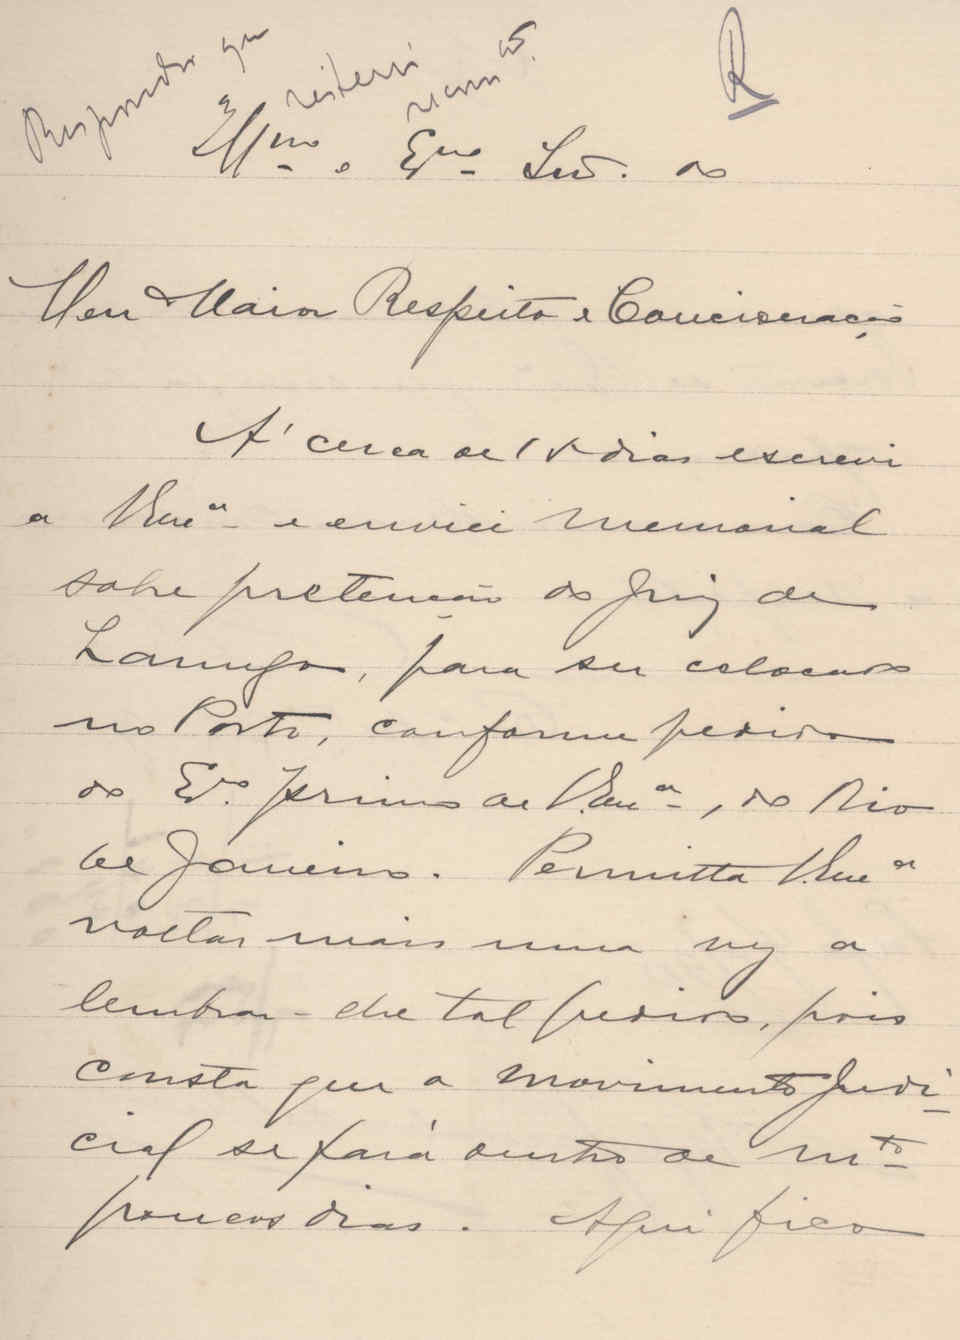 R
Responder que
reiterei
Illmo e Exmo Snr. do
Meu Maior Respeito e Concideração
A' cerca de 15 dias escrevi
a V.Exª e enviei memorial
sobre pretenção do Juiz de
Lamego, para ser colocado
no Porto, conforme pedido
do Exo. primo de V.Exª, do Rio
de Janeiro. Permitta V.Exª
voltar mais uma vez a
lembrar-lhe tal pedido, pois
consta que o movimento Judi-
cial se fará dentro de mto
poucos dias. Aqui fico